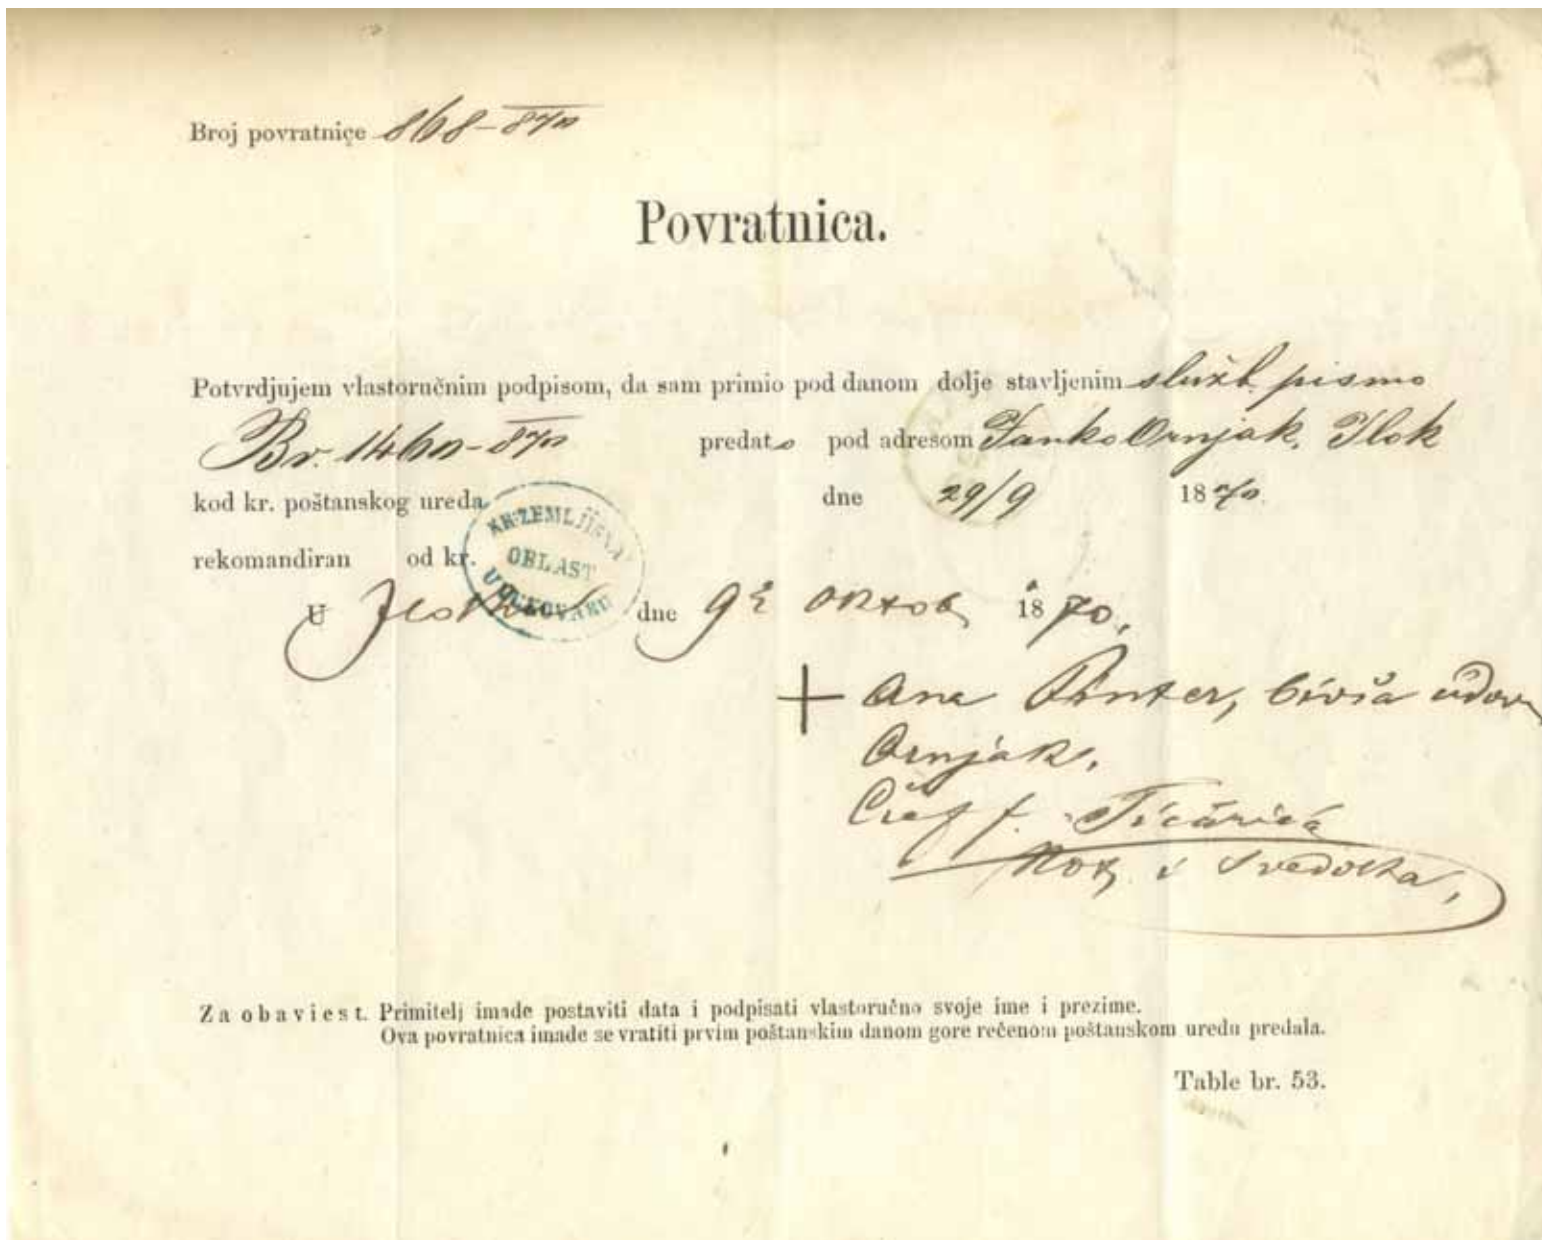 Broj povratnice 868-870
Povratnica.
Potvrdjujem vlastoručnim podpisom, da sam primio pod danom dolje stavljenim služb. pismo
Br. 1460-870 predato pod adresom Janko Ornjak. Ilok
kod kr. poštanskog ureda dne 29/9 1870.
rekomandiran od kr.
KR. ZEMLJIŠNA
OBLAST
U VUKOVARU
U Iloku dne 9 Oktob 1870.
+ Ana Pinter, bivša udov
Ornjak.
Not. i Svedok
Za obaviest. Primitelj imade postaviti data i podpisati vlastoručno svoje ime i prezime.
Ova povratnica imade se vratiti prvim poštanskim danom gore rečenom poštanskom uredu predala.
Table br. 53.